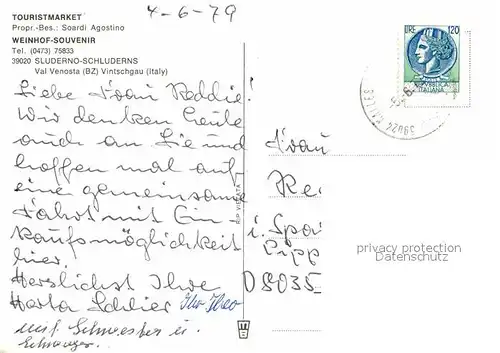 4-6-79
TOURISTMARKET
Propr.-Bes.: Soardi Agostino
WEINHOF-SOUVENIR
Tel. (0473) 75833
39020 SLUDERNO-SCHLUDERNS
Val Venosta (BZ) Vintschgau (Italy)
LIRE 120
REPUBBLICA
ITALIANA
39024
Liebe Frau Reddie!
Wir denken heute
auch an Sie und
hoffen mal auf
eine gemeinsame
Fahrt mit Ein-
kaufsmöglichkeit
hier.
Herzlichst Ihre
Herta
mit Schwester u.
Schwager.
Frau
Re
i. Spa
D 8035
privacy protection
Datenschutz